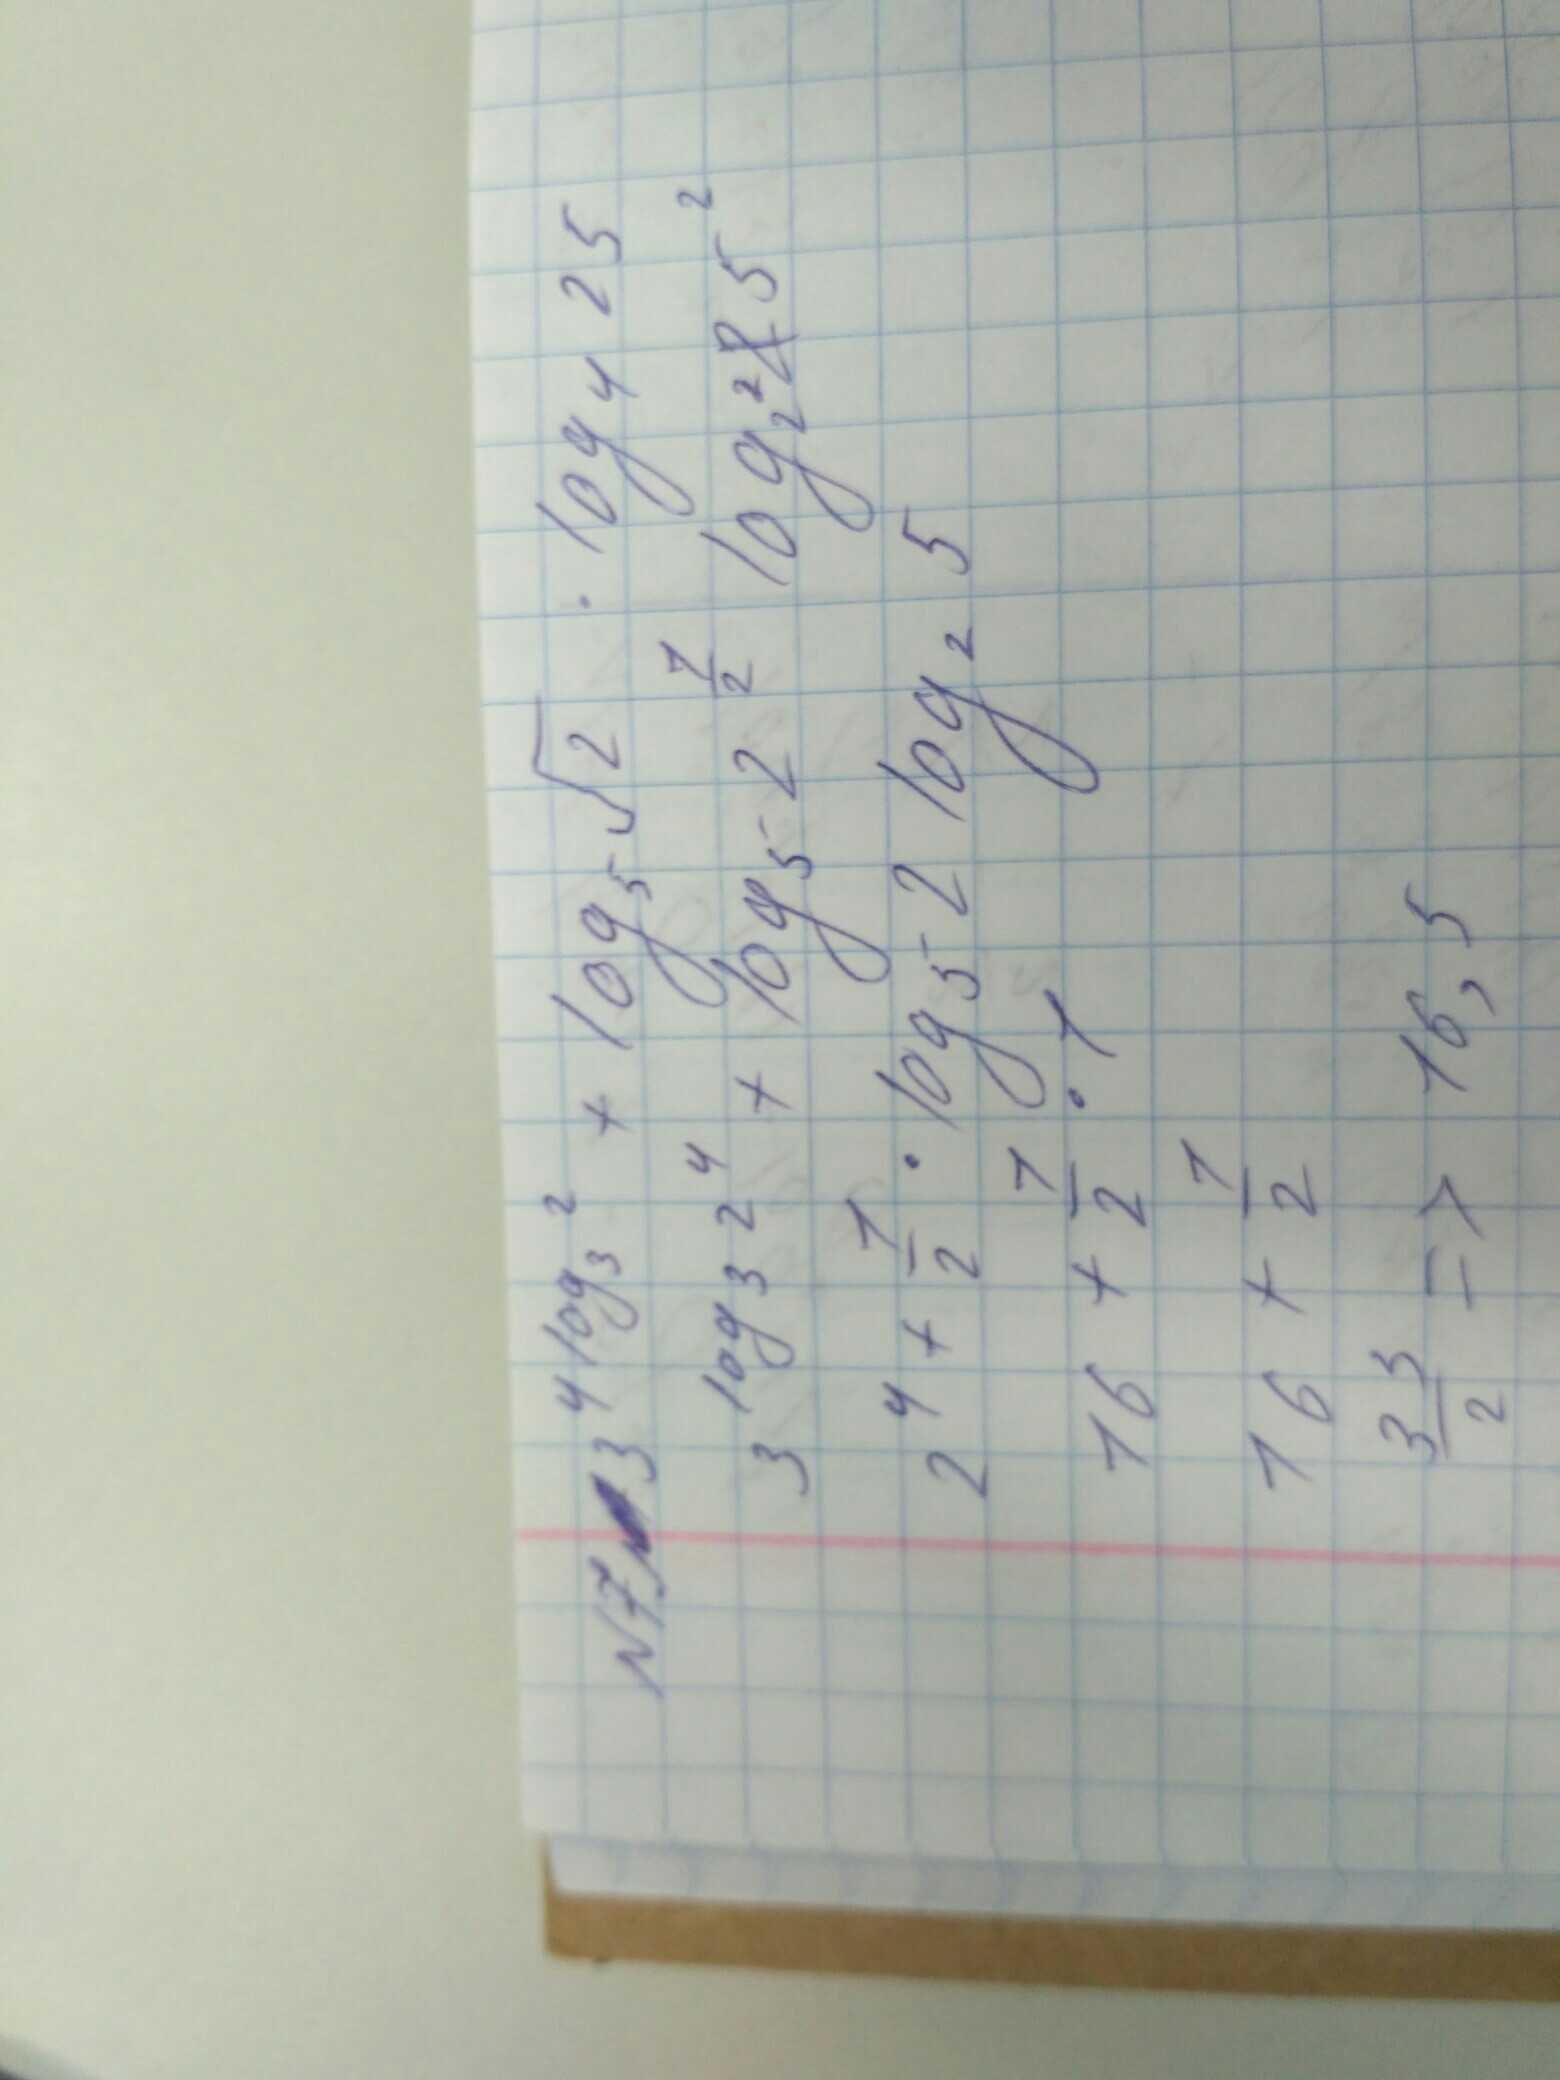 N7 3^{4 log_3 2} + log_5 √2 · log_4 25
3^{log_3 2^4} + log_5 2^{1/2} log_{2^2} 5^2
2^4 + 1/2 · log_5 2 log_2 5
16 + 1/2 · 1
16 + 1/2
33/2 => 16,5